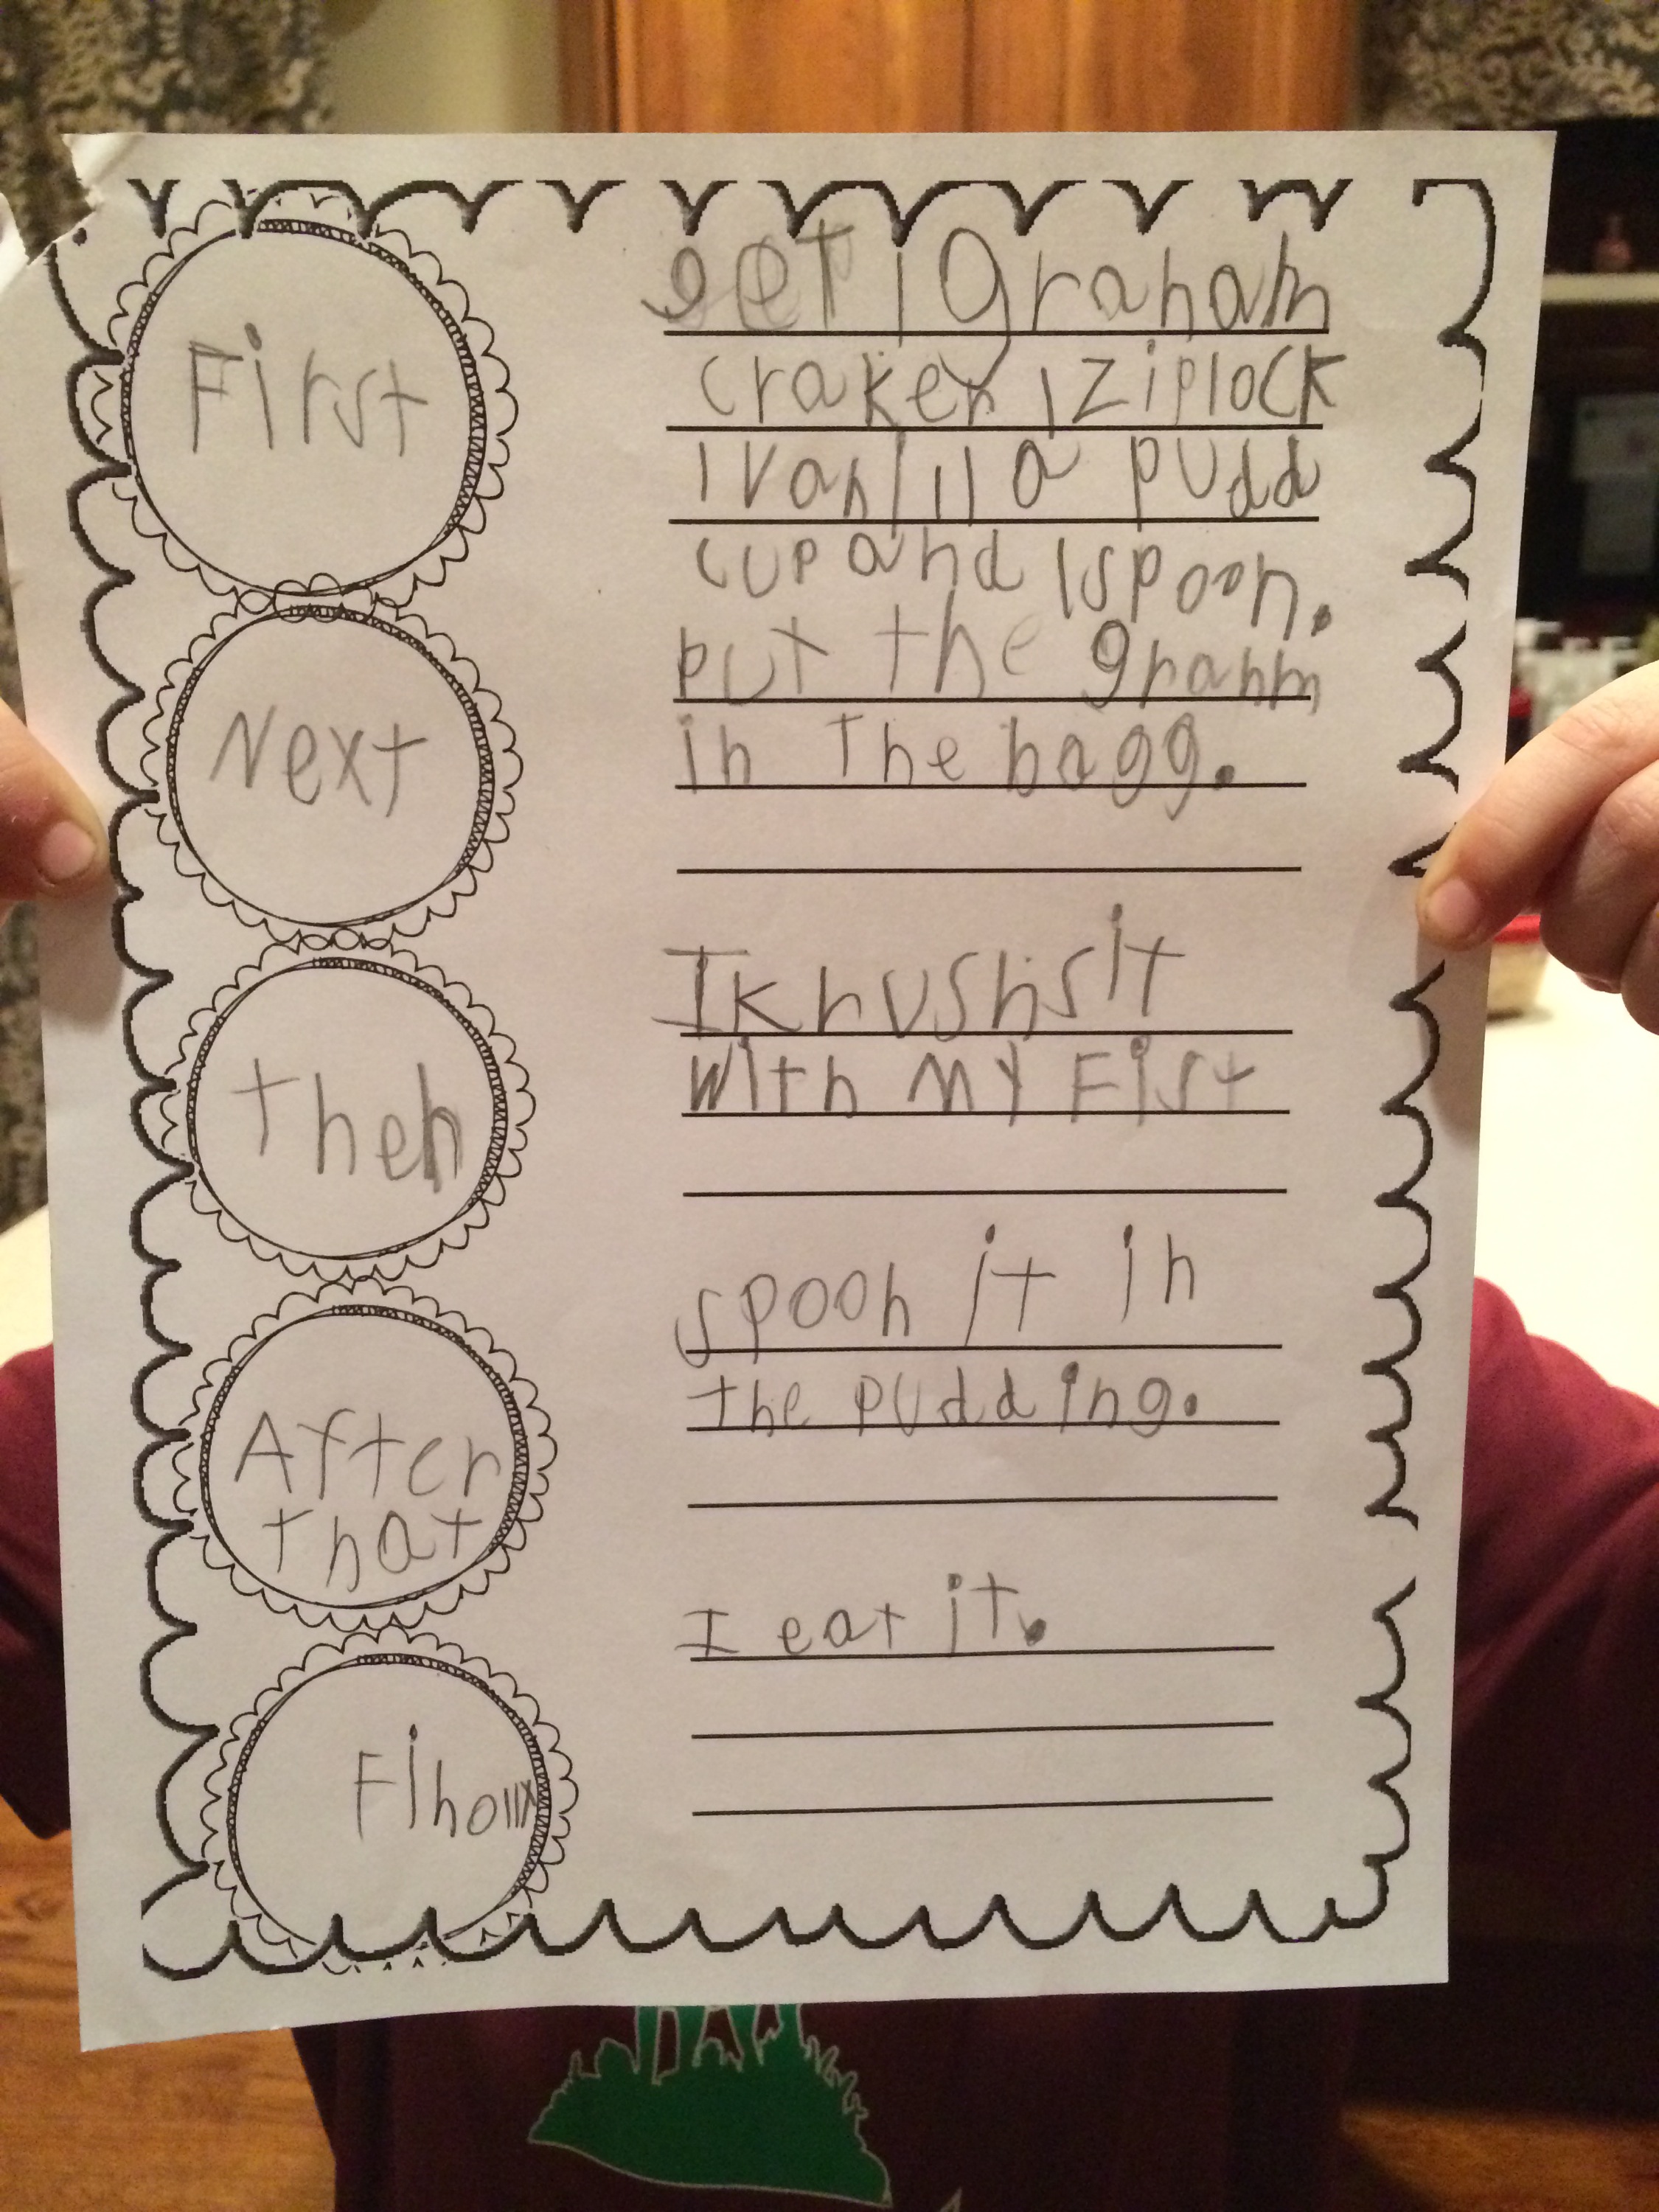 First
get 1 graham
craker 1 ziplock
1 vanilla pudd
cup and 1 spoon.
Next
put the grahm
in the bagg.
Then
I krushs it
with my Fist
After
that
spoon it in
the pudding.
Finally
I eat it.